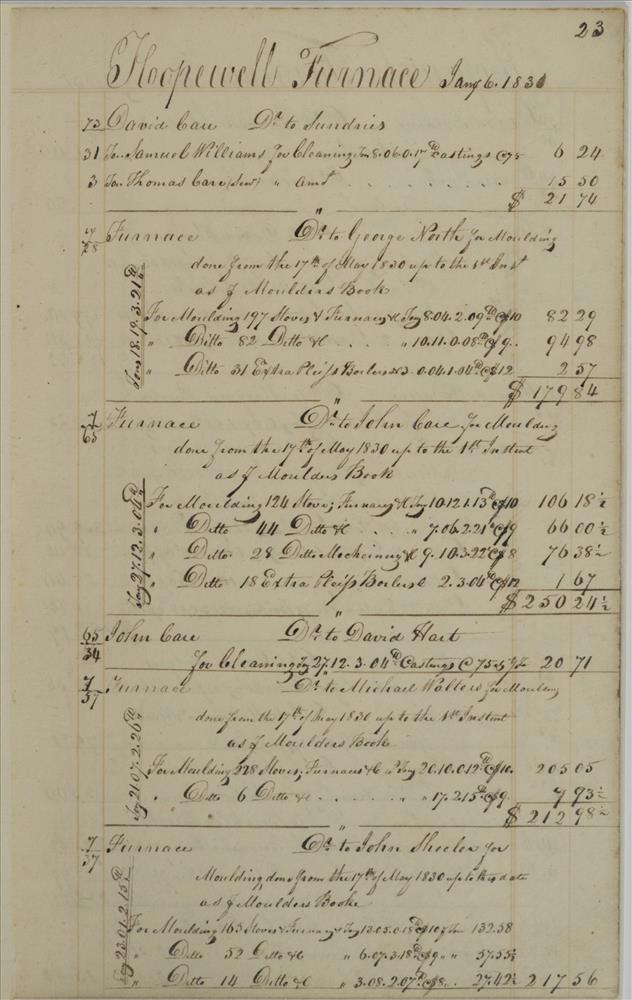 23
Hoopewell Furnace Jany 6. 1831
73 David Care Dr to Sundries
31 For Samuel Williams for Cleaning Ton 8.06.0.17 lb Castings @ 75 6 24
3 For Thomas Care (Sen) " Amt . . . . . . . . 15 50
$ 21 74
"
7/28 Furnace Dr to George North for Moulding
done from the 17th of May 1830 up to the 1st Inst
as of Moulders Book
Tons 18.19.3.21 lb
For Moulding 197 Stoves & Furnaces &c Tons 8.04.2.09 lb @ $10 82 29
" Ditto 82 Ditto &c . . . . " 10.11.0.08 lb @ $9. 94 98
" Ditto 31 Extra Pleiss Boilers &c 0.04.1.04 lb @ $12 2 57
$ 179 84
"
7/65 Furnace Dr to John Care for Moulding
done from the 17th of May 1830 up to the 1st Instent
as of Moulders Book
Tons 27.12.3.04 lb
For Moulding 124 Stoves, Furnaces &c Tons 10.12.1.13 lb @ $10 106 18½
" Ditto 44 Ditto &c . . . . " 7.06.2.21 lb @ $9 66 00½
" Ditto 28 Ditto Mecheinery &c 9.10.3.22 lb @ $8 76 38½
" Ditto 18 Extra Pleiss Boilers &c 2.3.04 lb @ $12 1 67
$ 250 24½
"
65/34 John Care Dr to David Hart
for Cleaning Tons 27.12.3.04 lb Castings @ 75 20 71
7/57 Furnace Dr to Michael Walters for Moulding
done from the 17th of May 1830 up to the 1st Instent
as of Moulders Book
Tons 21.07.2.26 lb
For Moulding 228 Stoves, Furnaces &c Tons 20.10.0.12 lb @ $10. 205 05
" Ditto 6 Ditto &c . . . . . " 17.2.15 lb @ $9. 7 93½
$ 212 98½
"
7/37 Furnace Dr to John Sheeler for
Moulding done from the 17th of May 1830 up to this date
as of Moulders Booke
Tons 23.01.2.15 lb
For Moulding 165 Stoves & Furnaces Tons 13.05.0.18 lb @ $10 132.58
" Ditto 52 Ditto &c " 6.07.3.18 lb @ $9 " " 57.55½
" Ditto 14 Ditto &c " 3.08.2.07 lb @ $8 . . 27.42½ 217 56